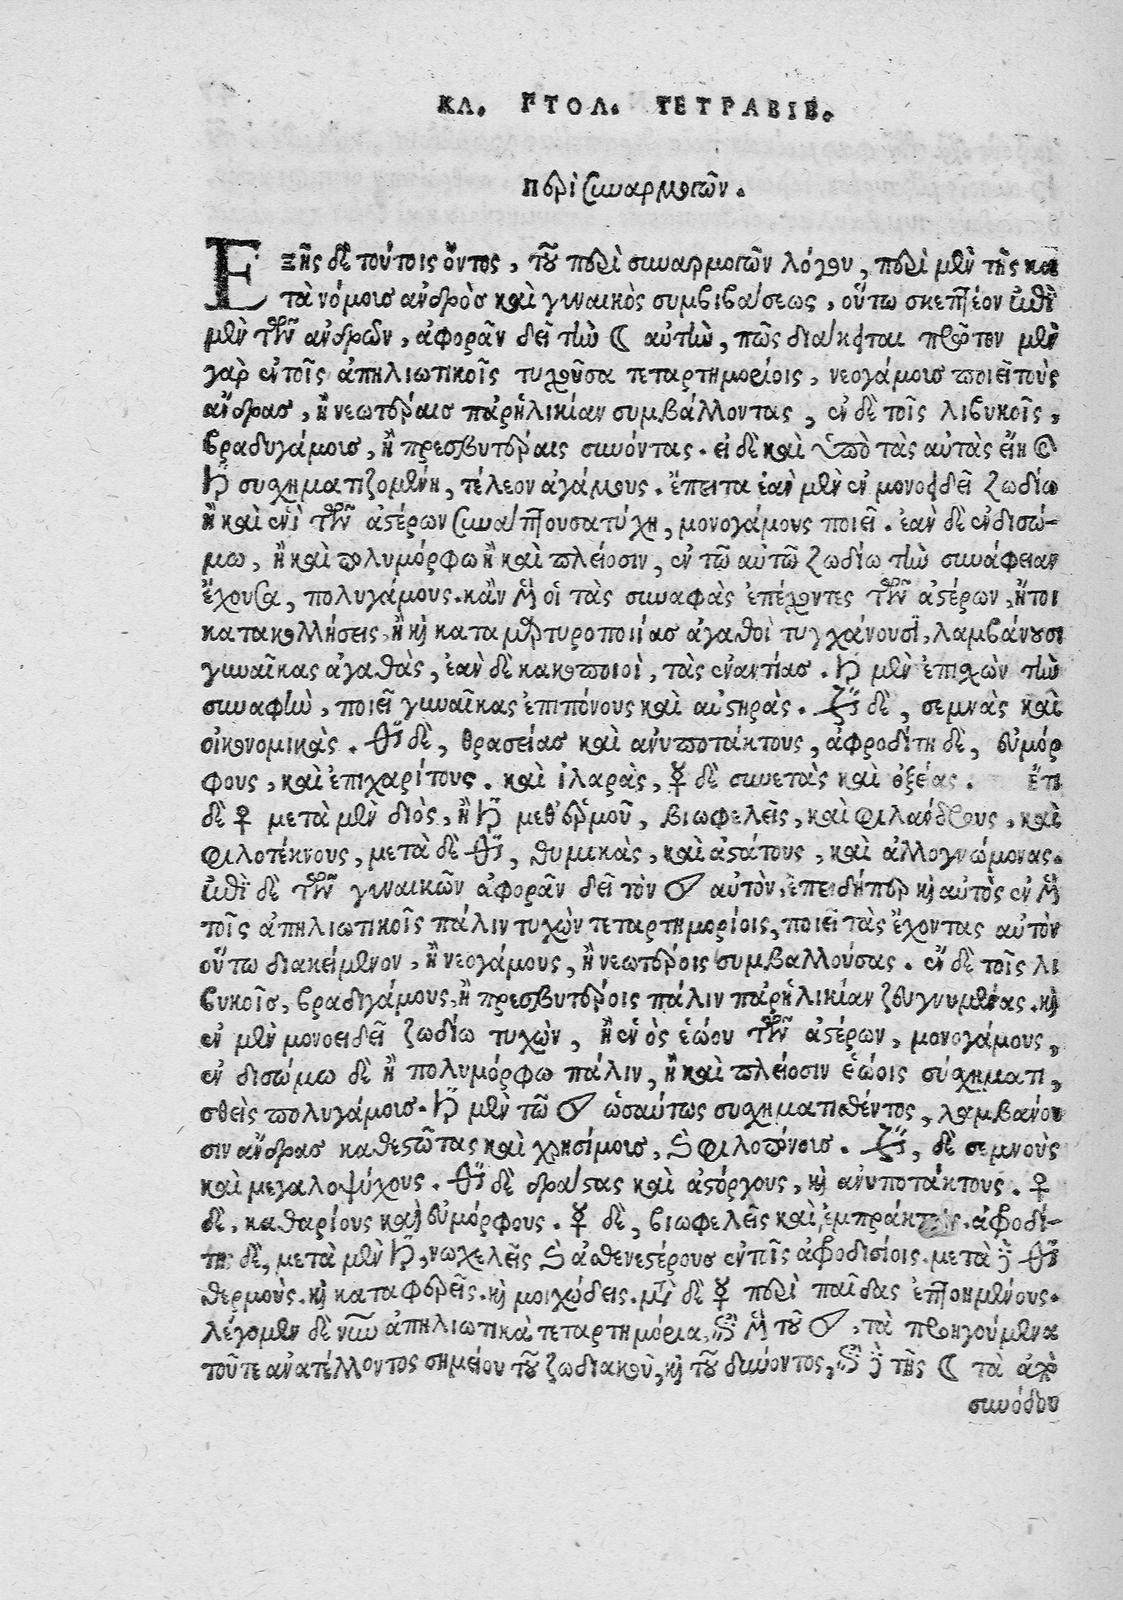 ΚΛ. ΠΤΟΛ. ΤΕΤΡΑΒΙΒ.
περὶ συναρμοτῶν.
Εξῆς δὲ τούτοις ὄντος, τοῦ περὶ συναρμοτῶν λόγου, περὶ μὲν τῆς κα
τὰ νόμοις ἀνδρὸς καὶ γυναικὸς συμβιβάσεως, οὕτω σκεπτέον ἐπὶ
μὲν τῶν ἀνδρῶν, ἀφορᾶν δεῖ τὴν ☾ αὐτὴν, πῶς διάκειται πρῶτον μὲν
γὰρ ἐν τοῖς ἀπηλιωτικοῖς τυχοῦσα τεταρτημορίοις, νεογάμοις ποιεῖ τοὺς
ἄνδρας, ἢ νεωτέραις παρ' ἡλικίαν συμβάλλοντας, ἐν δὲ τοῖς λιβυκοῖς,
βραδυγάμοις, ἢ πρεσβυτέραις συνόντας. εἰ δὲ καὶ ὑπὸ τὰς αὐτὰς εἴη
♄ συσχηματιζομένη, τέλεον ἀγάμους. ἔπειτα ἐὰν μὲν ἐν μονοειδεῖ ζωδίω
ἢ καὶ ἑνὶ τῶν ἀστέρων συνάπτουσα τύχη, μονογάμους ποιεῖ. ἐὰν δὲ ἐν δισώ-
μω, ἢ καὶ πολυμόρφω ἢ καὶ πλείοσιν, ἐν τῶ αὐτῶ ζωδίω τὴν συνάφειαν
ἔχουσα, πολυγάμους. κἂν μὲν οἱ τὰς συναφὰς ἐπέχοντες τῶν ἀστέρων, ἤτοι
κατακολλήσεις, ἢ καὶ καταμαρτυροποιίας ἀγαθοὶ τυγχάνουσι, λαμβάνουσι
γυναῖκας ἀγαθὰς, ἐὰν δὲ κακοποιοὶ, τὰς ἐναντίας. ♄ μὲν ἐπισχὼν τὴν
συναφὴν, ποιεῖ γυναῖκας ἐπιπόνους καὶ αὐστηράς. ♃ δὲ, σεμνὰς καὶ
οἰκονομικὰς. ♂ δὲ, θρασείας καὶ ἀνυποτάκτους, ἀφροδίτη δὲ, εὐμόρ
φους, καὶ ἐπιχαρίτους. καὶ ἱλαρὰς, ☿ δὲ συνετὰς καὶ ὀξείας. ἔτι
δὲ ♀ μετὰ μὲν διὸς, ἢ ♄ μεθ' ἑρμοῦ, βιωφελεῖς, καὶ φιλάνδρους, καὶ
φιλοτέκνους, μετὰ δὲ ♂, θυμικὰς, καὶ ἀστάτους, καὶ ἀλλογνώμονας.
ἐπὶ δὲ τῶν γυναικῶν ἀφορᾶν δεῖ τὸν ☉ αὐτὸν, ἐπειδήπερ καὶ αὐτὸς ἐν μὲν
τοῖς ἀπηλιωτικοῖς πάλιν τυχὼν τεταρτημορίοις, ποιεῖ τὰς ἔχοντας αὐτὸν
οὕτω διακείμενον, ἢ νεογάμους, ἢ νεωτέροις συμβαλλούσας. ἐν δὲ τοῖς λι
βυκοῖς, βραδυγάμους, ἢ πρεσβυτέροις πάλιν παρ' ἡλικίαν ζευγνυμένας. καὶ
ἐν μὲν μονοειδεῖ ζωδίω τυχὼν, ἢ ἑνὸς ἑώου τῶν ἀστέρων, μονογάμους,
ἐν δισώμω δὲ ἢ πολυμόρφω πάλιν, ἢ καὶ πλείοσιν ἑώοις συσχηματι,
σθεὶς πολυγάμοις. ♄ μὲν τῶ ☉ ὡσαύτως συσχηματισθέντος, λαμβάνου
σιν ἄνδρας καθεστῶτας καὶ χρησίμοις, καὶ φιλοπόνοις. ♃, δὲ σεμνοὺς
καὶ μεγαλοψύχους. ♂ δὲ δράστας καὶ ἀστόργους, καὶ ἀνυποτάκτους. ♀
δὲ, καθαρίους καὶ εὐμόρφους. ☿ δὲ, βιωφελεῖς καὶ ἐμπράκτοις. ἀφροδί-
τη δὲ, μετὰ μὲν ♄, νωχελεῖς καὶ ἀσθενεστέρους ἐν τοῖς ἀφροδισίοις. μετὰ δὲ ♂
θερμοὺς. καὶ καταφερεῖς. καὶ μοιχώδεις. μετὰ δὲ ☿ περὶ παῖδας ἐπτοημένους.
λέγομεν δὲ νῦν ἀπηλιωτικὰ τεταρτημόρια, ἐπὶ μὲν τοῦ ☉, τὰ προηγούμενα
τοῦτε ἀνατέλλοντος σημείου τοῦ ζωδιακοῦ, καὶ τοῦ δύνοντος, ἐπὶ δὲ τῆς ☾ τὰ ἀπὸ
συνόδου